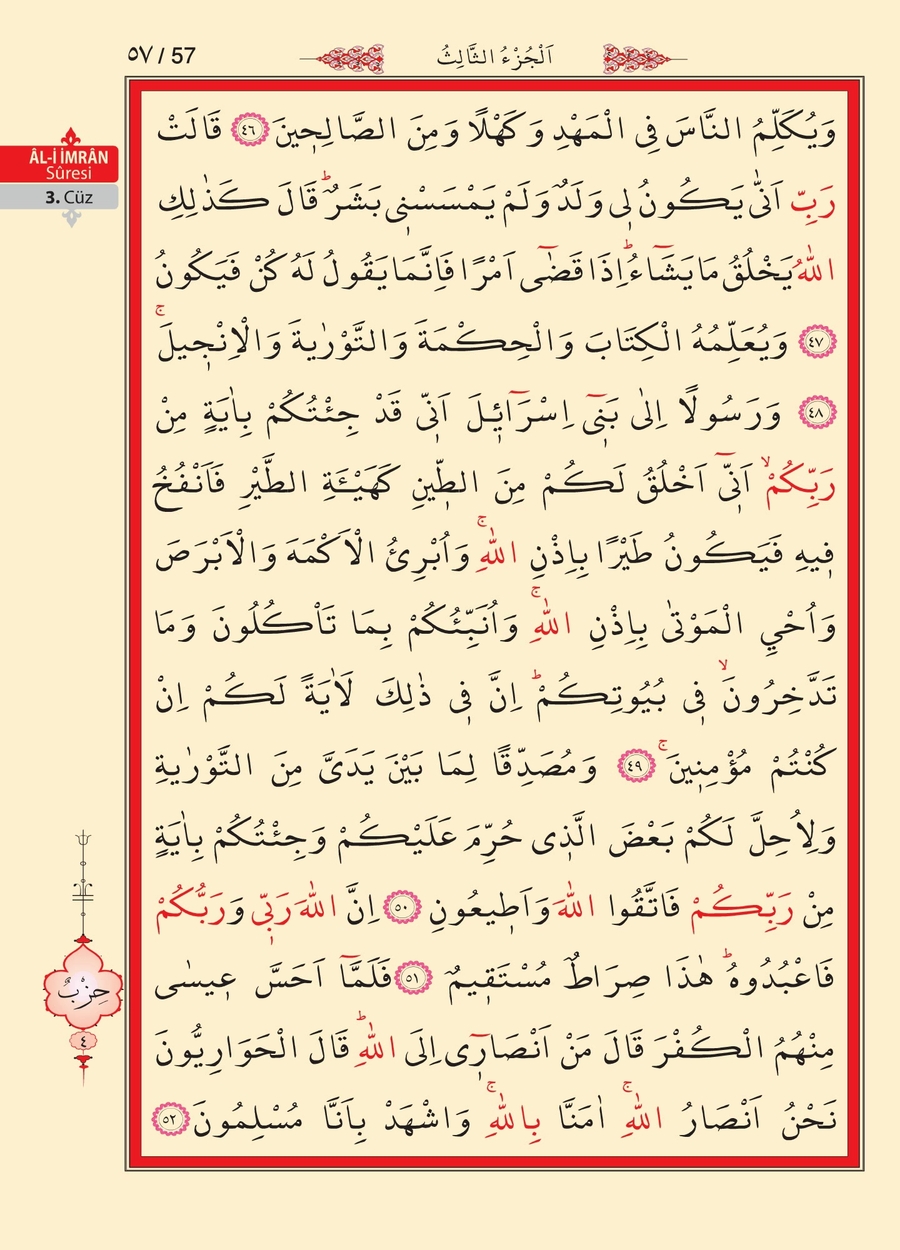 ٥٧ / 57
اَلْجُزْءُ الثَّالِثُ
ÂL-İ İMRÂN
Sûresi
3. Cüz
وَيُكَلِّمُ النَّاسَ فِى الْمَهْدِ وَكَهْلًا وَمِنَ الصَّالِحٖينَ ﴿٤٦﴾ قَالَتْ
رَبِّ اَنّٰى يَكُونُ لٖى وَلَدٌ وَلَمْ يَمْسَسْنٖى بَشَرٌؕ قَالَ كَذٰلِكِ
اللّٰهُ يَخْلُقُ مَا يَشَٓاءُؕ اِذَا قَضٰٓى اَمْرًا فَاِنَّمَا يَقُولُ لَهُ كُنْ فَيَكُونُ
﴿٤٧﴾ وَيُعَلِّمُهُ الْكِتَابَ وَالْحِكْمَةَ وَالتَّوْرٰيةَ وَالْاِنْجٖيلَۚ
﴿٤٨﴾ وَرَسُولًا اِلٰى بَنٖٓى اِسْرَٓائٖلَ اَنّٖى قَدْ جِئْتُكُمْ بِاٰيَةٍ مِنْ
رَبِّكُمْۙ اَنّٖٓى اَخْلُقُ لَكُمْ مِنَ الطّٖينِ كَهَيْـَٔةِ الطَّيْرِ فَاَنْفُخُ
فٖيهِ فَيَكُونُ طَيْرًا بِاِذْنِ اللّٰهِۚ وَاُبْرِئُ الْاَكْمَهَ وَالْاَبْرَصَ
وَاُحْيِ الْمَوْتٰى بِاِذْنِ اللّٰهِۚ وَاُنَبِّئُكُمْ بِمَا تَاْكُلُونَ وَمَا
تَدَّخِرُونَۙ فٖى بُيُوتِكُمْؕ اِنَّ فٖى ذٰلِكَ لَاٰيَةً لَكُمْ اِنْ
كُنْتُمْ مُؤْمِنٖينَۚ ﴿٤٩﴾ وَمُصَدِّقًا لِمَا بَيْنَ يَدَىَّ مِنَ التَّوْرٰيةِ
وَلِاُحِلَّ لَكُمْ بَعْضَ الَّذٖى حُرِّمَ عَلَيْكُمْ وَجِئْتُكُمْ بِاٰيَةٍ
مِنْ رَبِّكُمْ فَاتَّقُوا اللّٰهَ وَاَطٖيعُونِ ﴿٥٠﴾ اِنَّ اللّٰهَ رَبّٖى وَرَبُّكُمْ
فَاعْبُدُوهُؕ هٰذَا صِرَاطٌ مُسْتَقٖيمٌ ﴿٥١﴾ فَلَمَّٓا اَحَسَّ عٖيسٰى
مِنْهُمُ الْكُفْرَ قَالَ مَنْ اَنْصَارٖٓى اِلَى اللّٰهِؕ قَالَ الْحَوَارِيُّونَ
نَحْنُ اَنْصَارُ اللّٰهِۚ اٰمَنَّا بِاللّٰهِۚ وَاشْهَدْ بِاَنَّا مُسْلِمُونَ ﴿٥٢﴾
حِزْبٌ
٤